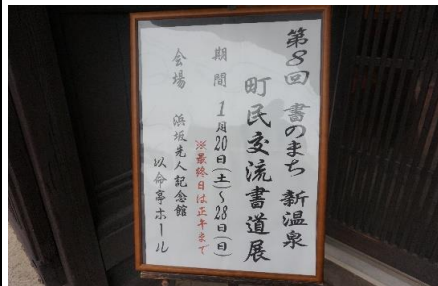 第8回 書のまち 新温泉
町民交流書道展
期間 1月20日(土)～28日(日)
※最終日は正午まで
会場 浜坂先人記念館
以命亭ホール